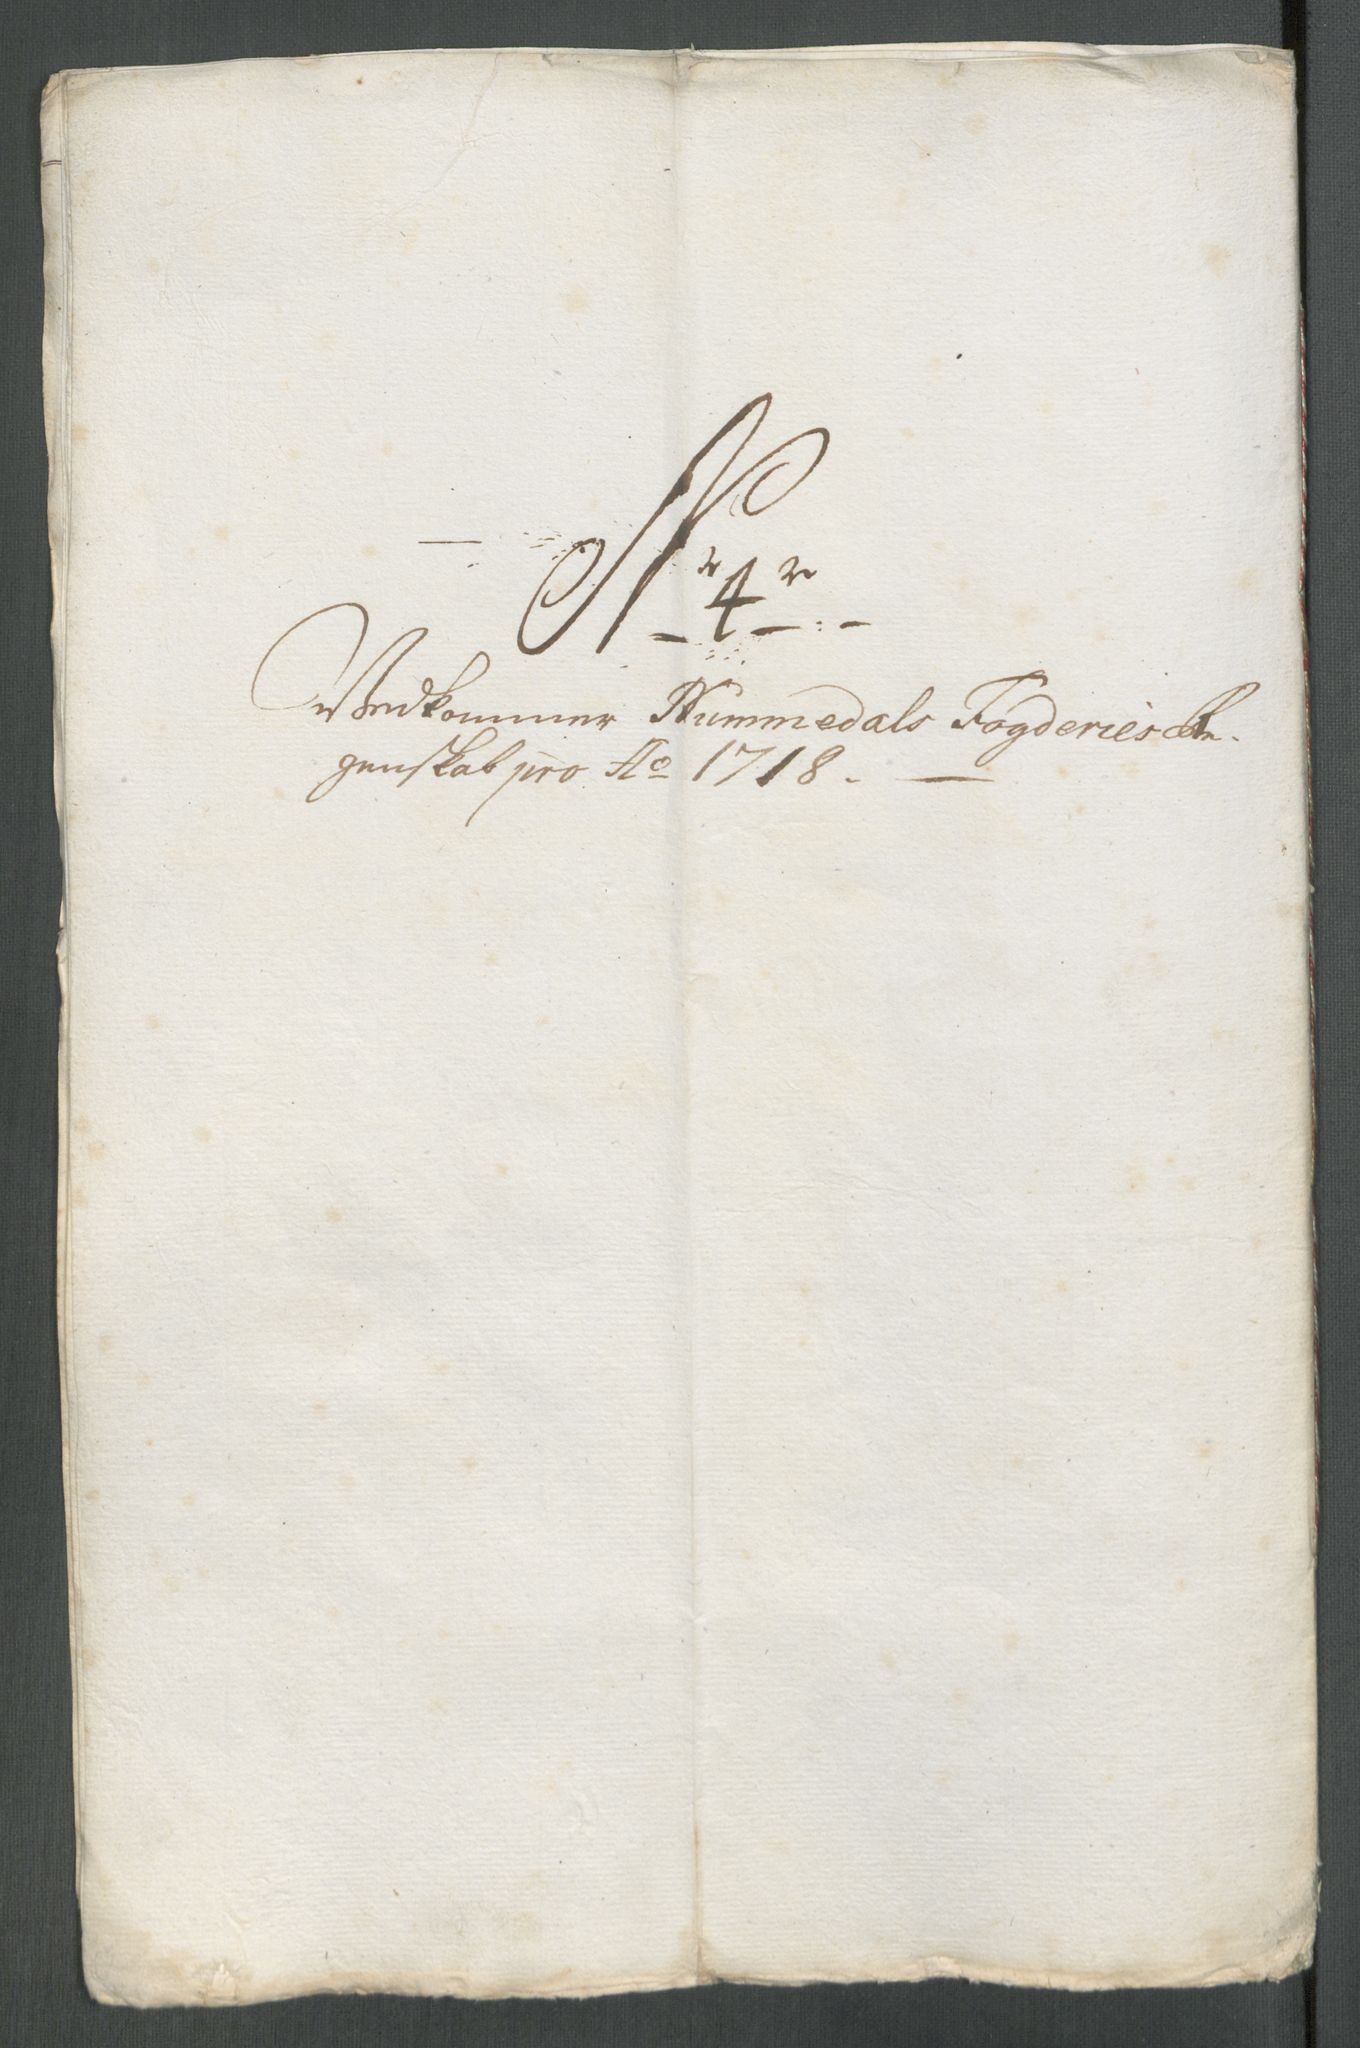 Nr 4
Vedkommer Nummedals Fogderies Re-
genskab pro Ao 1718.